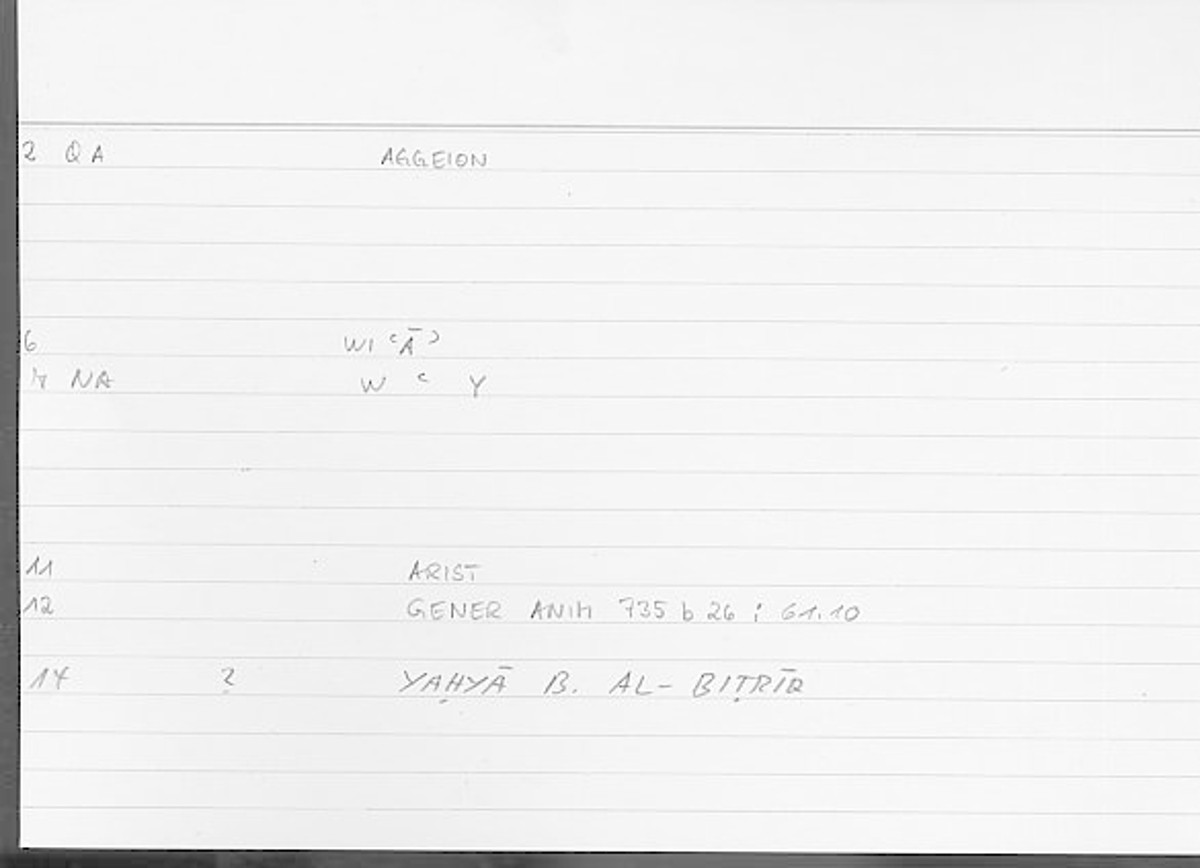 2 QA AGGEION
6 WI ʿĀʾ
7 NA W ʿ Y
11 ARIST
12 GENER ANIM 735 b 26 ; 61.10
14 ? YAḤYĀ B. AL-BIṬRĪQ